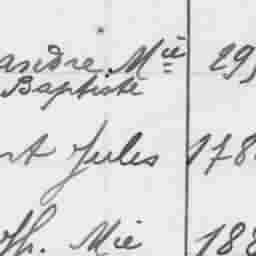 andre Mie 295
Baptiste
rt Jules 178
th. Mie 188